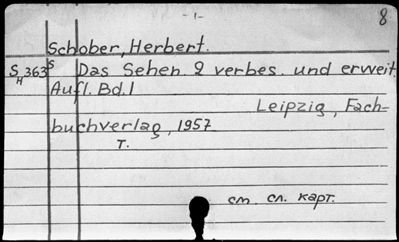 -1-
8
Schober, Herbert.
SH 363 s Das Sehen 2 verbes. und erweit.
Aufl. Bd. I
Leipzig, Fach-
buchverlag, 1957
т.
см. сл. карт.